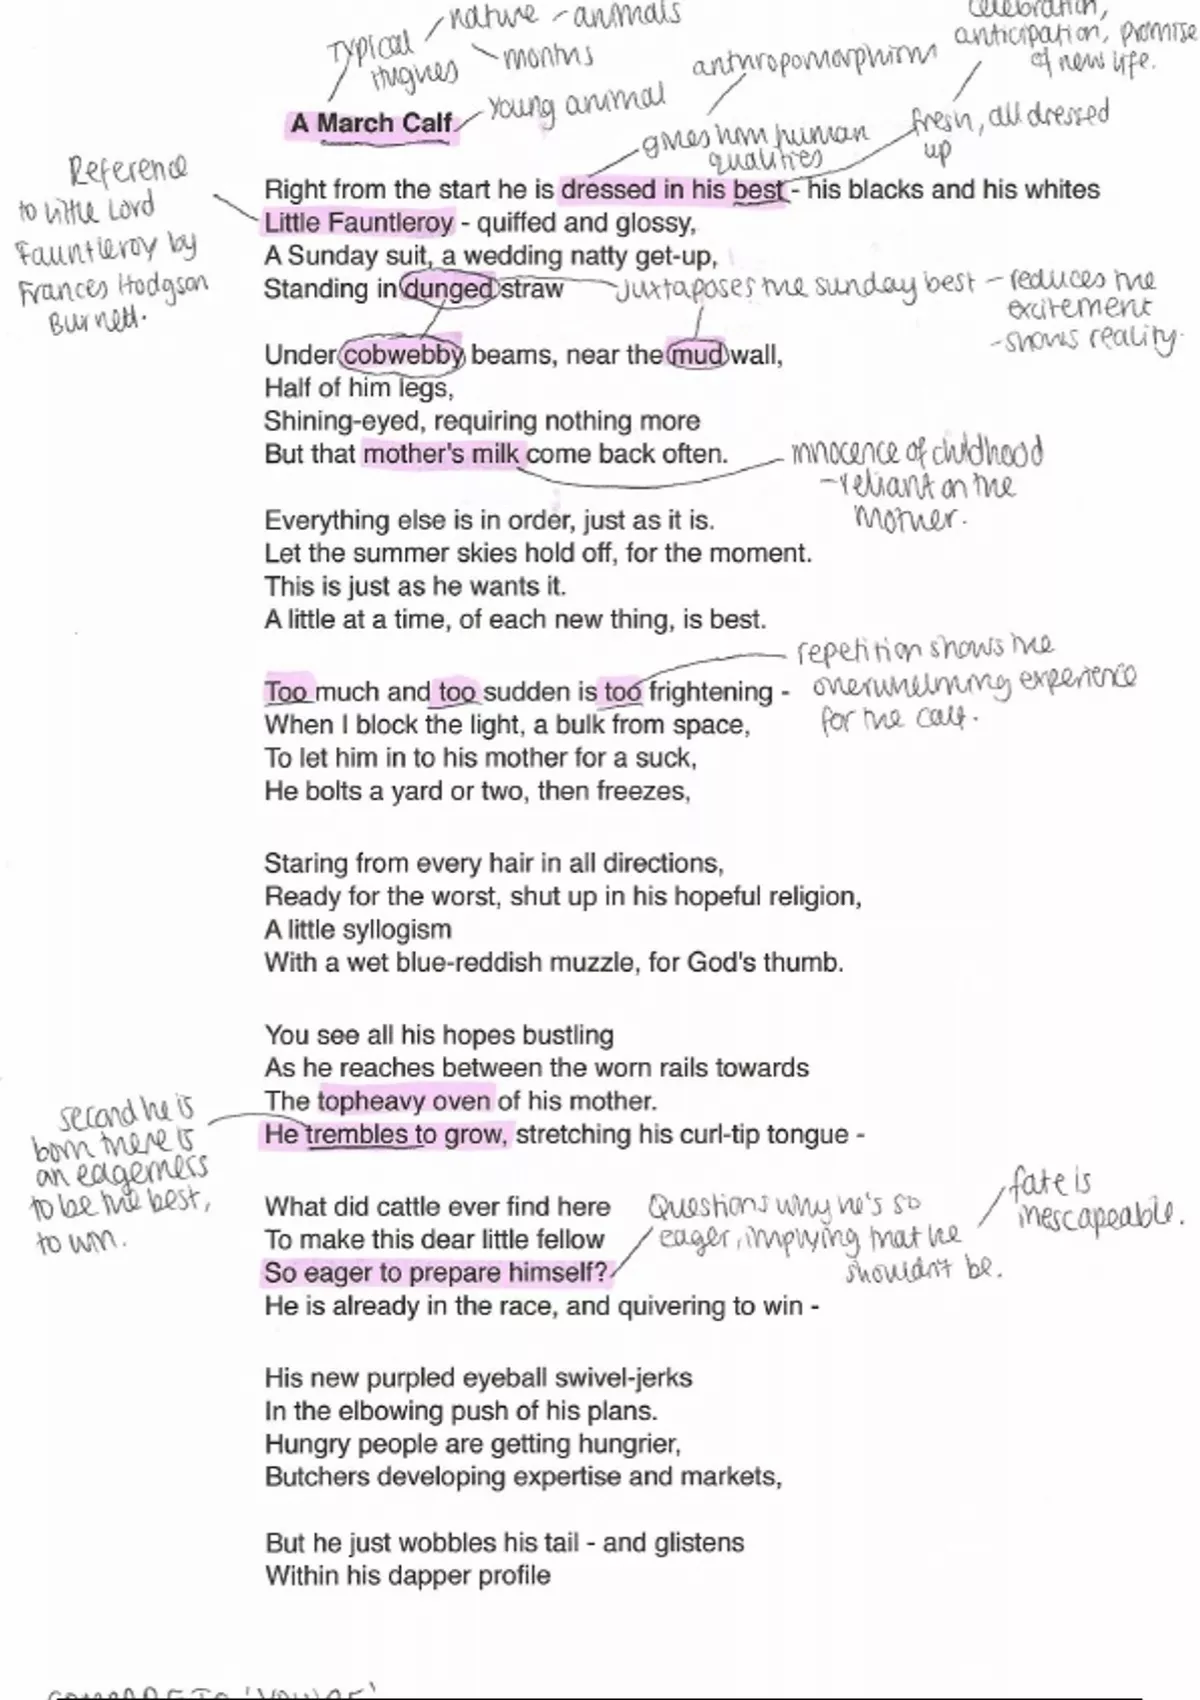 celebration,
nature - animals
anticipation, promise
Typical
Hughes
months
of new life.
anthropomorphism
Young animal
fresh, all dressed
up
A March Calf
gives him human
qualities
Reference
to Little Lord
Fauntleroy by
Frances Hodgson
Burnett.
Right from the start he is dressed in his best - his blacks and his whites
Little Fauntleroy - quiffed and glossy,
A Sunday suit, a wedding natty get-up,
Standing in dunged straw
juxtaposes the sunday best - reduces the
excitement
- shows reality.
Under cobwebby beams, near the mud wall,
Half of him legs,
Shining-eyed, requiring nothing more
But that mother's milk come back often.
innocence of childhood
- reliant on the
Mother.
Everything else is in order, just as it is.
Let the summer skies hold off, for the moment.
This is just as he wants it.
A little at a time, of each new thing, is best.
repetition shows the
overwhelming experience
for the calf.
Too much and too sudden is too frightening -
When I block the light, a bulk from space,
To let him in to his mother for a suck,
He bolts a yard or two, then freezes,
Staring from every hair in all directions,
Ready for the worst, shut up in his hopeful religion,
A little syllogism
With a wet blue-reddish muzzle, for God's thumb.
You see all his hopes bustling
As he reaches between the worn rails towards
The topheavy oven of his mother.
He trembles to grow, stretching his curl-tip tongue -
second he is
born there is
an eagerness
to be the best,
to win.
What did cattle ever find here
To make this dear little fellow
So eager to prepare himself?
He is already in the race, and quivering to win -
Questions why he's so
eager, implying that he
shouldn't be.
fate is
inescapable.
His new purpled eyeball swivel-jerks
In the elbowing push of his plans.
Hungry people are getting hungrier,
Butchers developing expertise and markets,
But he just wobbles his tail - and glistens
Within his dapper profile